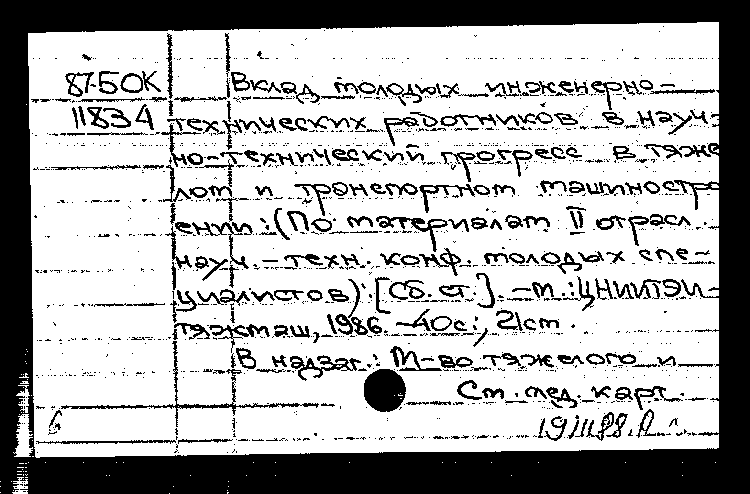 87-5OK Вклад молодых инженерно-
11834 технических работников в науч-
но-технический прогресс в тяже
лом и транспортном машиностро
ении : (По материалам II отрасл.
науч. - техн. конф. молодых спе-
циалистов) : [Сб. ст.]. - М. : ЦНИИТЭИ-
тяжмаш, 1986. - 40с. ; 21см.
В надзаг. : М-во тяжелого и
См. след. карт.
6